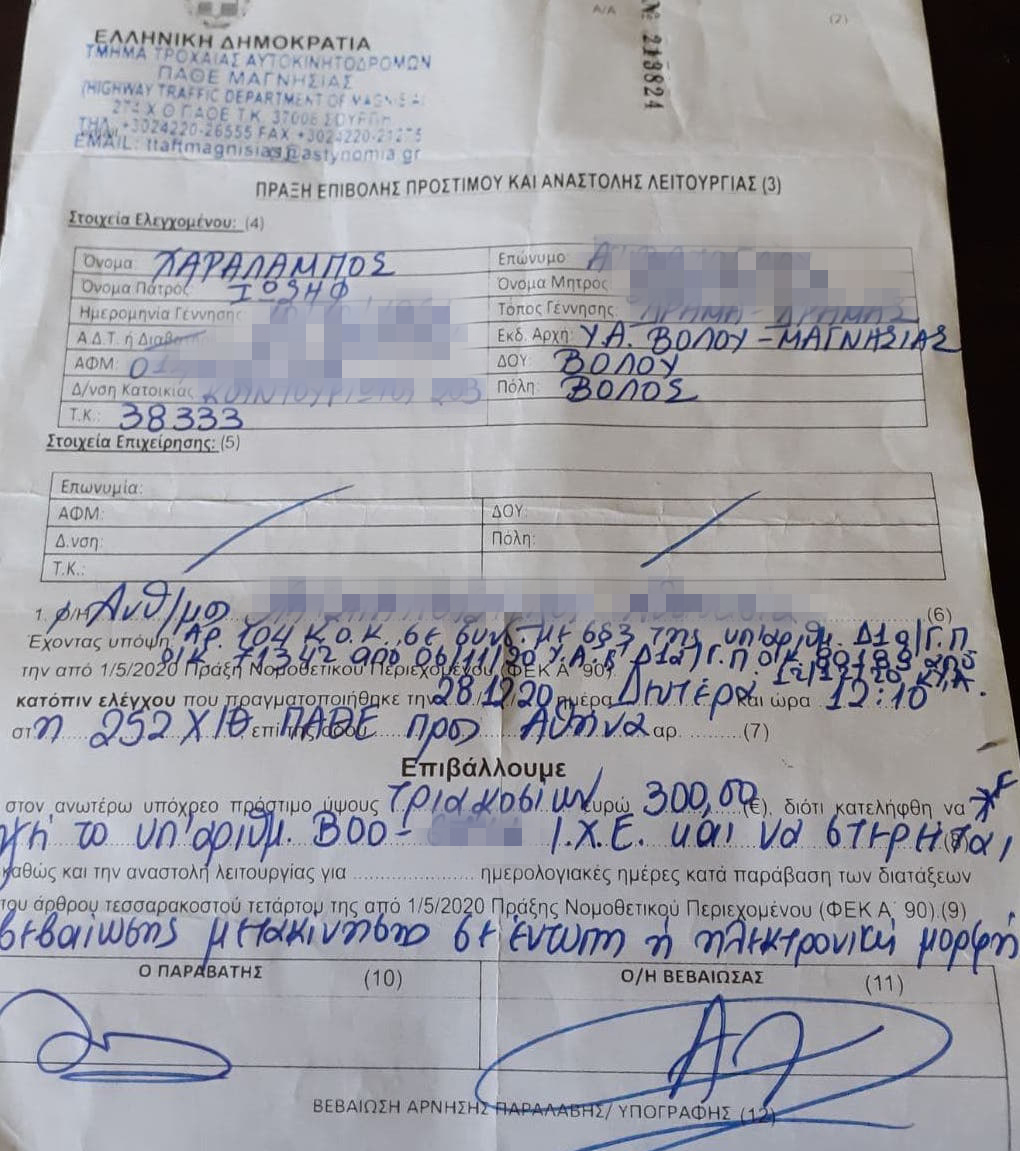 Α/Α
(2)
№ 213824
ΕΛΛΗΝΙΚΗ ΔΗΜΟΚΡΑΤΙΑ
ΤΜΗΜΑ ΤΡΟΧΑΙΑΣ ΑΥΤΟΚΙΝΗΤΟΔΡΟΜΩΝ
ΠΑΘΕ ΜΑΓΝΗΣΙΑΣ
(HIGHWAY TRAFFIC DEPARTMENT OF MAGNESIA)
Τ.Κ. 37006 ΣΟΥΡΠΗ
ΤΗΛ. +3024220-26555 FAX +3024220-
EMAIL: ttaftmagnisias@astynomia.gr
ΠΡΑΞΗ ΕΠΙΒΟΛΗΣ ΠΡΟΣΤΙΜΟΥ ΚΑΙ ΑΝΑΣΤΟΛΗΣ ΛΕΙΤΟΥΡΓΙΑΣ (3)
Στοιχεία Ελεγχομένου: (4)
Όνομα: ΧΑΡΑΛΑΜΠΟΣ Επώνυμο Α
Όνομα Πατρός ΙΩΣΗΦ Όνομα Μητρος
Ημερομηνία Γέννησης: Τόπος Γέννησης: ΔΡΑΜΑ - ΔΡΑΜΑΣ
Α.Δ.Τ. ή Διαβατ Εκδ. Αρχή: Υ.Α. ΒΟΛΟΥ - ΜΑΓΝΗΣΙΑΣ
ΑΦΜ: ΔΟΥ: ΒΟΛΟΥ
Δ/νση Κατοικίας Πόλη: ΒΟΛΟΣ
Τ.Κ.: 38333
Στοιχεία Επιχείρησης: (5)
Επωνυμία:
ΑΦΜ: ΔΟΥ:
Δ.νση: Πόλη:
Τ.Κ.:
1. Ο/Η Ανθ/μος (6)
Έχοντας υπόψη: Αρ. 104 Κ.Ο.Κ. σε συνδ. με της υπ'αριθμ. Δ1α/Γ.Π
Ο/Κ. 71342 από 06/11/20 Υ.Α. Δ1α/Γ.Π Ο/Κ. από
την από 1/5/2020 Πράξη Νομοθετικού Περιεχομένου (ΦΕΚ Α΄ 90). Κ.Υ.Α.
κατόπιν ελέγχου που πραγματοποιήθηκε την 28.12.20 ημέρα Δευτέρα και ώρα 12:10
στη 252 Χ/Θ επί της οδού ΠΑΘΕ προς Αθήνα αρ. (7)
Επιβάλλουμε
στον ανωτέρω υπόχρεο πρόστιμο ύψους Τριακοσίων ευρώ 300,00 (€), διότι κατελήφθη να
το υπ'αριθμ. ΒΟΟ- Ι.Χ.Ε. και να στερείται
καθώς και την αναστολή λειτουργίας για ημερολογιακές ημέρες κατά παράβαση των διατάξεων
του άρθρου τεσσαρακοστού τετάρτου της από 1/5/2020 Πράξης Νομοθετικού Περιεχομένου (ΦΕΚ Α΄ 90).(9)
βεβαίωσης μετακίνησης σε έντυπη ή ηλεκτρονική μορφή
Ο ΠΑΡΑΒΑΤΗΣ (10) Ο/Η ΒΕΒΑΙΩΣΑΣ (11)
ΒΕΒΑΙΩΣΗ ΑΡΝΗΣΗΣ ΠΑΡΑΛΑΒΗΣ/ ΥΠΟΓΡΑΦΗΣ (12)